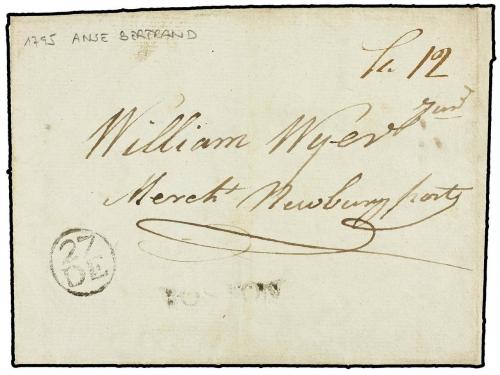 1795 ANSE BERTRAND
12
William Wyer Junr
Mercht Newburyport
27
DE
BOSTON